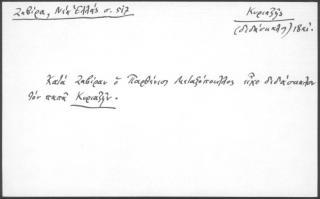 Ζαβίρα, Νέα Ἑλλὰς σ. 517
Κυριαζῆς
(διδάσκαλος) 18 αἰ.
Κατὰ Ζαβίραν ὁ Παρθένιος Μεταξόπουλος εἶχε διδάσκαλον
τὸν παπᾶ Κυριαζῆν.